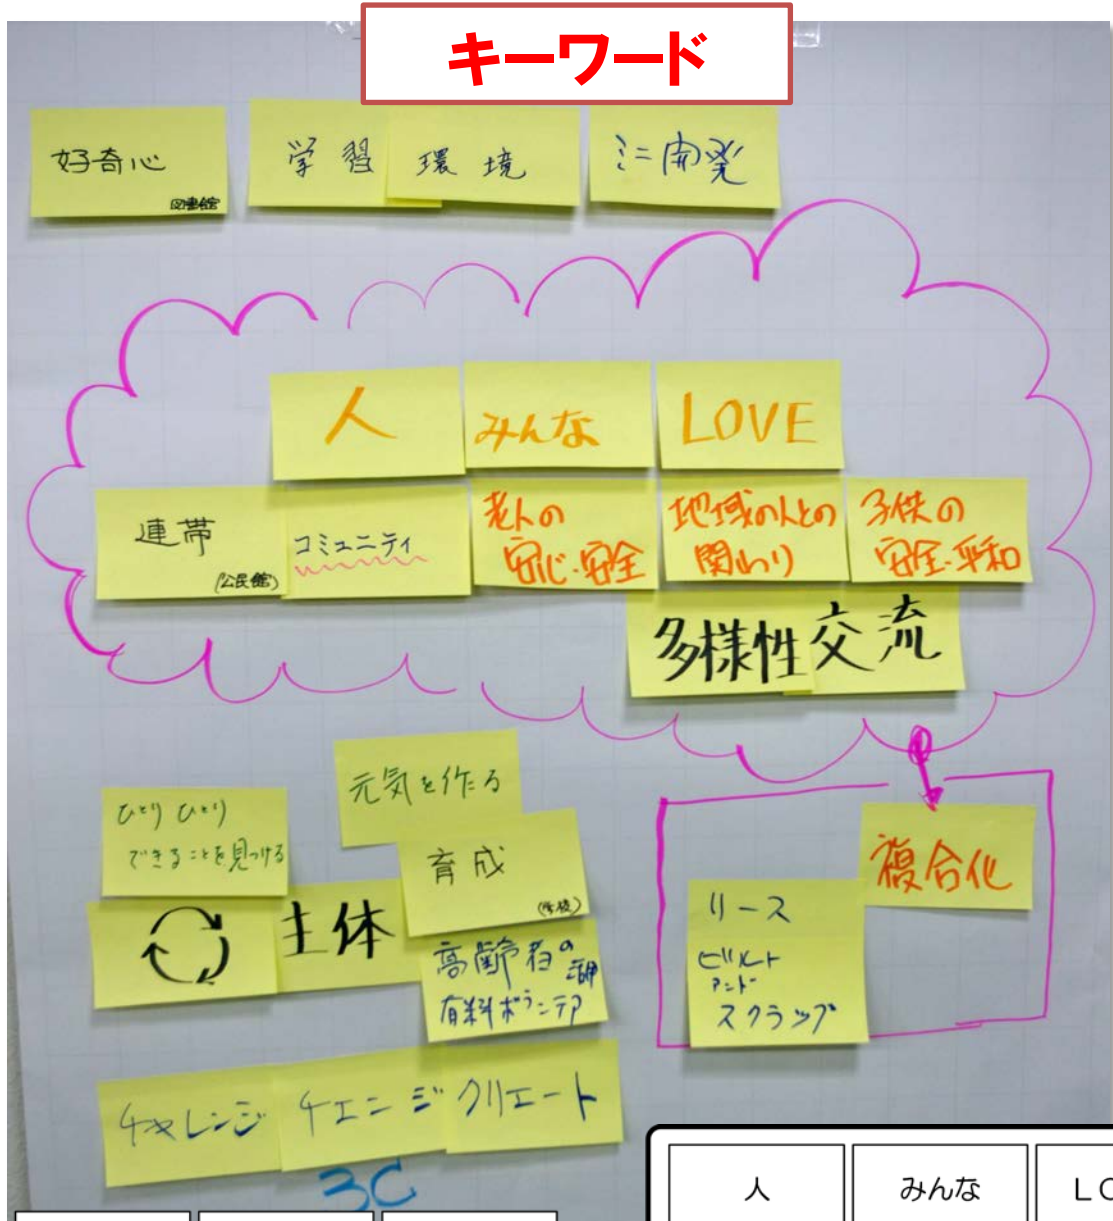 キーワード
好奇心
図書館
学習
環境
ミニ開発
人
みんな
LOVE
連帯
(公民館)
コミュニティ
老人の
安心・安全
地域の人との
関わり
子供の
安全・平和
多様性
交流
元気を作る
ひとりひとり
できることを見つける
育成
(学校)
主体
高齢者の活用
有料ボランテア
複合化
リース
ビルト
アンド
スクラップ
チャレンジ
チェンジ
クリエート
3C
人
みんな